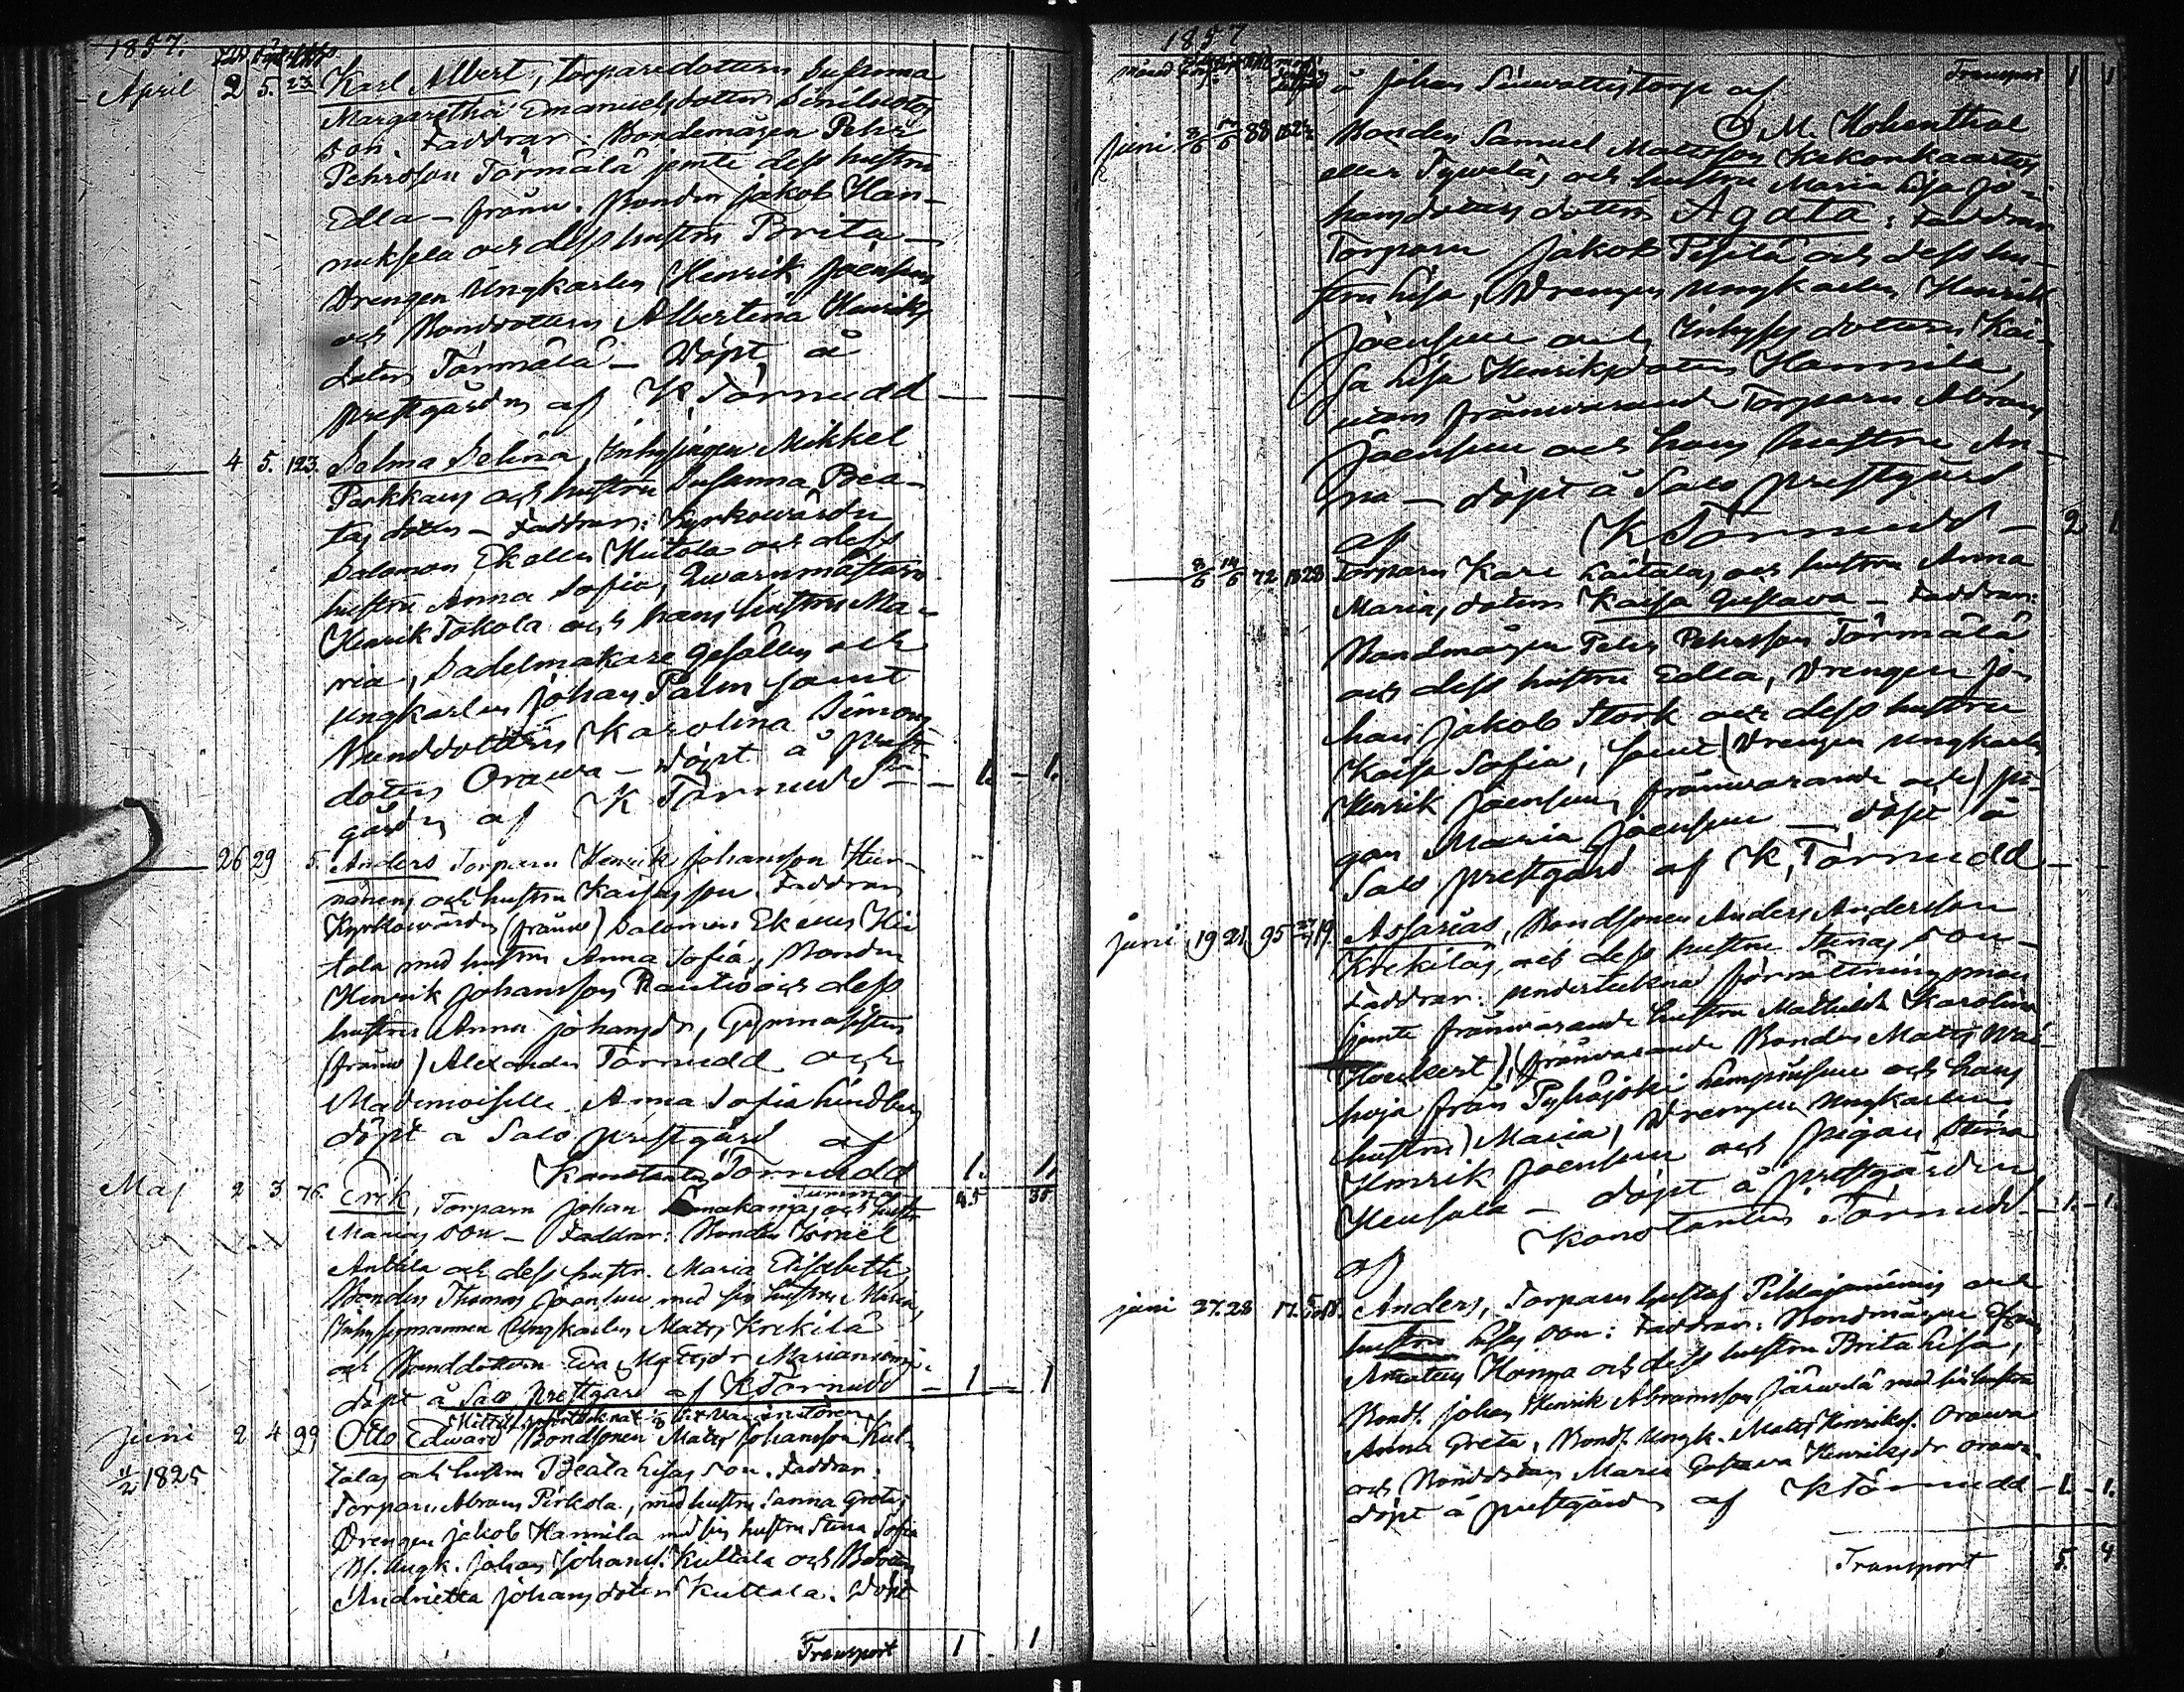 1857.
April 2 5. 23 Karl Albert, torparedottern Susanna
Margaretha Emanuelsdotter
son. Faddrar: Bondemågen Pehr
Pehrsson Törmälä jemte dess hustru
Edla – frånv. Bonden Jakob Han-
nuksela och dess hustru Brita –
Drengen Ungkarlen Henrik Joensuu
och Bondedottern Albertina Henriks
dotter Törmälä – Döpt å
prestgården af K Törnudd
4 5. 123. Selma Selina, Inhysingen Mikkel
Parkkaus och hustru Susanna Bea-
tas dotter – Faddrar: Kyrkowärden
Salomon Ek eller Hiitola och dess
hustru Anna Sofia, Qwarnmästaren
Henrik Tokola och hans hustru Ma-
ria, Sadelmakare Gesällen och
ungkarlen Johan Palm samt
Bonddottern Karolina Simons
dotter Orawa – döpt å prest
gården af K Törnudd – 1. – 1.
26 29 5. Anders Torparen Henrik Johansson
och hustru Kaisas son. Faddrar
Kyrkowärden (frånv) Salomon Ek eller Hii
tola med hustru Anna Sofia, Bonden
Henrik Johansson Rautio och dess
hustru Anna Johansdr, Gymnasisten
(frånv) Alexander Törnudd och
Mademoiselle Anna Sofia Lindberg
döpt å Salo prestgård af
Konstantin Törnudd 1. 1.
Summa 45 38.
Maj 2 3 76. Erik, Torparen Johan och hustr
Marias son – Faddrar: Bonden Israel
Anttila och dess hustr. Maria Elisabeth,
Bonden Thomas Joensuu med sin hustru Maria,
Inhysesmannen Ungkarlen Matts Krekilä
och Bonddottern Eva Matsdr Marianiemi.
döpt å Salo prestgård af K Törnudd – 1 – 1
Juni 2 4 99 Otto Edward Bondsonen Matts Johansson Kul-
11/2 1825 talas och hustru Beata Lisas son. Faddrar:
Torparen Abram Pirkola, med hustru Sanna Greta;
Drengen Jakob Hannila med sin hustru Stina Sofia
Bf. Ungk. Johan Johansf. Kultala och Bdotter
Andrietta Johansdotter Kultala. Döpt
Transport 1 1
1857
å Johan torp af Transport 1 1
M. Hohenthal
Juni 3/6 7/6 88 Bonden Samuel Matsson
eller och hustru Maria Lisa Jo-
hansdotters dotter Agata: Faddrar
Torparen Jakob Pisilä och dess hu-
stru Lisa, Drengen Ungkarlen Henrik
Joensuu och Inhyses dottern Kai-
sa Lisa Henriksdotter Hannila,
utom frånwarande Torparen Abram
Joensuu och hans hustru An-
na – döpt å Salo prestgård
af K Törnudd – 2 1.
8/6 14/6 72 1828 Torparen Karl Laitalas och hustru Anna
Marias dotter Kaisa Gustawa – Faddrar:
Bondmågen Pehr Pehrsson Törmälä
och dess hustru Edla, Drengen Jo
han Jakob Stork och dess hustru
Kaisa Sofia, samt (Drengen ungkarl
Henrik Joensuu frånwarande och) pi-
gan Maria Joensuu – döpt å
Salo prestgård af K, Törnudd – –
Juni 19 21 95 19. Assarias, Bondsonen Anders Andersson
Krekiläs, och dess hustru Stinas son –
Faddrar: undertecknad förrättningsman
(jemte frånwarande hustru Mathilda Karolina
(frånwarande Bonden Matts Wai-
noja från Pyhäjoki och hans
hustru) Maria, Drengen Ungkarlen
Henrik Joensuu och pigan Stina
– döpt å prestgården
af Konstantin Törnudd – 1. – 1.
Juni 27. 28 17. Anders, Torparen Gustaf och
hustru Lisas son: Faddrar: Bondmågen
Honga och dess hustru Brita Lisa,
Bonds. Johan Henrik Abramsson Järwelä med sin hustru
Anna Greta, Bonds. Ungk. Matts Henriks. Orawa
och Bonddottern Maria Gustawa Henriksdr Orawa.
döpt å prestgården af K Törnudd – 1. – 1.
Transport 5. 4